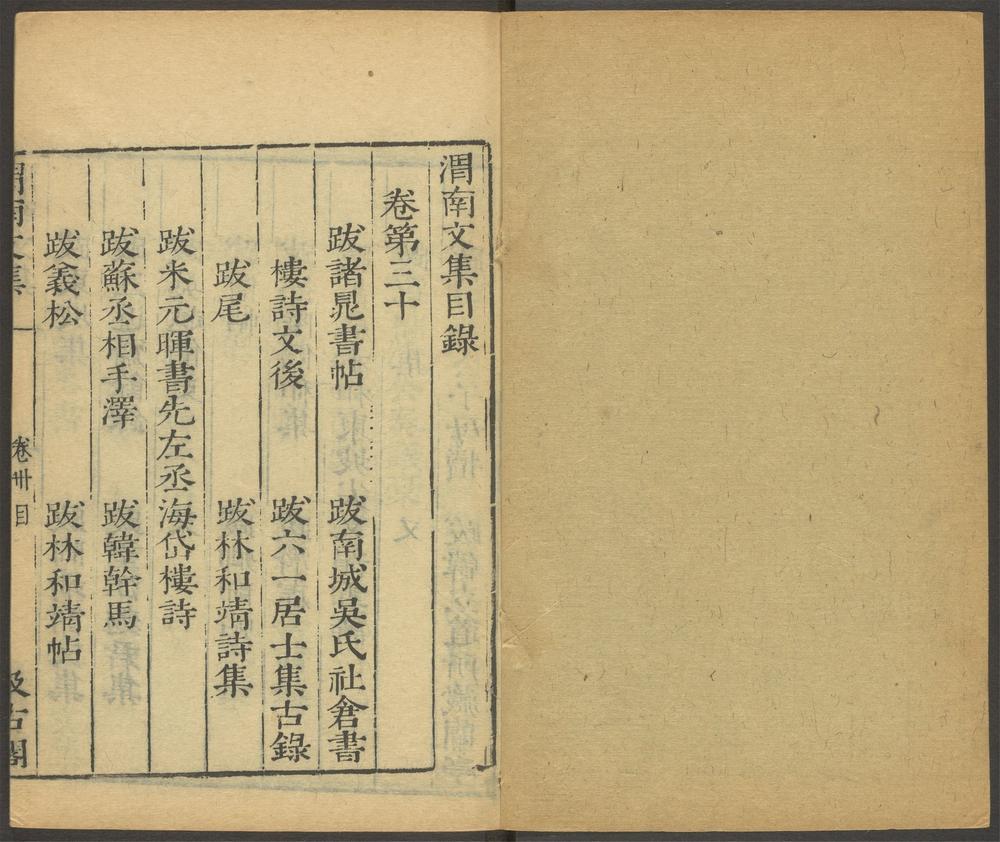 渭南文集目錄
卷第三十
跋諸晁書帖　跋南城吳氏社倉書
樓詩文後　跋六一居士集古錄
跋尾　跋林和靖詩集
跋米元暉書先左丞海岱樓詩
跋蘇丞相手澤　跋韓幹馬
跋義松　跋林和靖帖
渭南文集　卷卅目　汲古閣